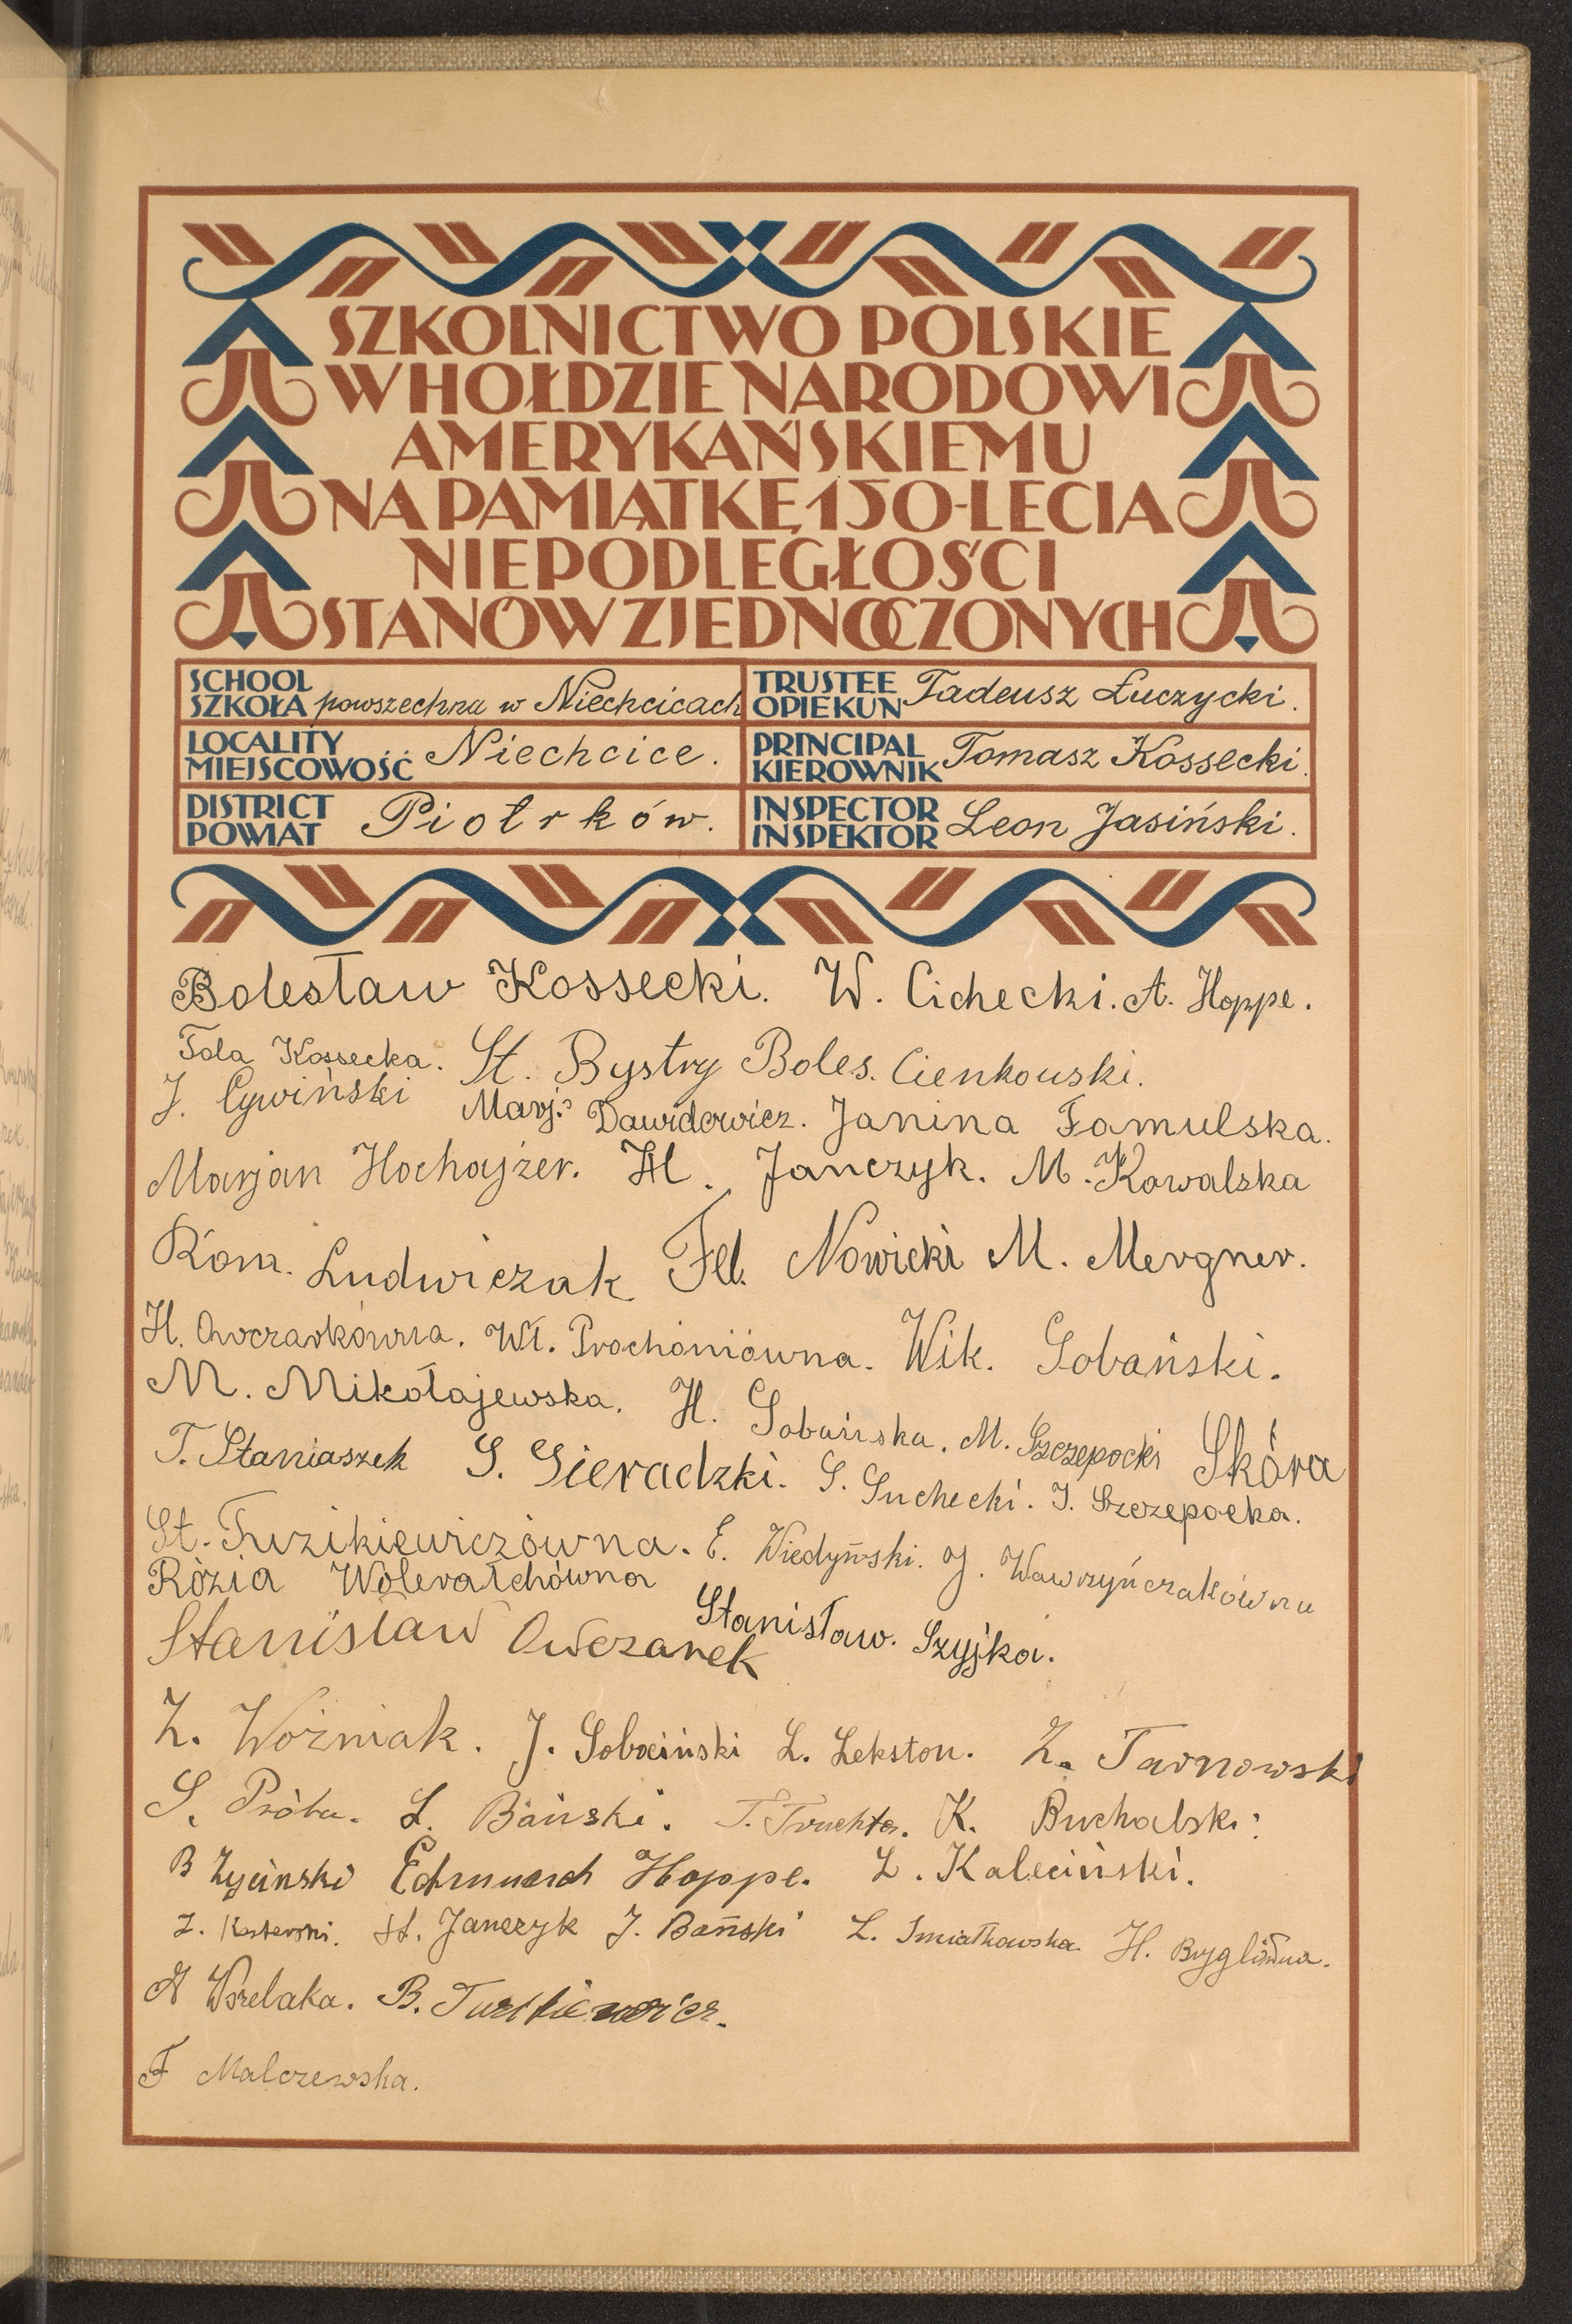 SZKOLNICTWO POLSKIE
W HOŁDZIE NARODOWI
AMERYKAŃSKIEMU
NA PAMIĄTKĘ 150-LECIA
NIEPODLEGŁOŚCI
STANÓW ZJEDNOCZONYCH
SCHOOL
SZKOŁA powszechna w Niechcicach
TRUSTEE
OPIEKUN Tadeusz Łuczycki.
LOCALITY
MIEJSCOWOŚĆ Niechcice.
PRINCIPAL
KIEROWNIK Tomasz Kossecki.
DISTRICT
POWIAT Piotrków.
INSPECTOR
INSPEKTOR Leon Jasiński.
Bolesław Kossecki. W. Cichecki. A. Hoppe.
Tola Kossecka. St. Bystry Boles. Cienkowski.
J. Cywiński Marj. Dawidowicz. Janina Famulska.
Marjan Hochajzer. H. Janczyk. M. Kowalska
Rom. Ludwiczak Fel. Nowicki M. Mergner.
H. Owczarkówna. Wł. Prochoniówna. Wik. Sobański.
M. Mikołajewska. H. Sobańska. M. Szczepocki Skóra
T. Staniaszek S. Sieradzki. S. Suchecki. J. Szczepocka.
St. Fuzikiewiczówna. E. Wiedyński. J. Wawrzyńczakówna
Rózia
Stanisław Owczarek Stanisław. Szyjka.
Z. Woźniak. J. Sobociński L. Lekston. Z. Tarnowski
S. Próba. L. Bański. T. Truchta. K. Buchalski.
B Zyciński Edmund Hoppe. L. Kaleciński.
St. Janczyk J. Bański L. Smiałkowska H.
A Wszelaka. B.
F Malczewska.